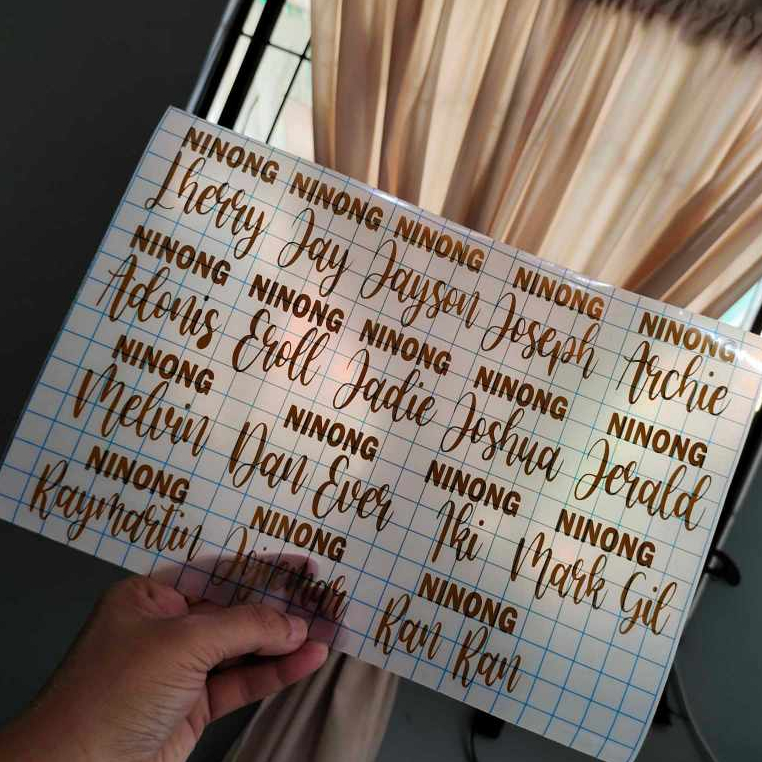 NINONG NINONG NINONG NINONG NINONG
Lherry Jay Jayson Joseph Archie
NINONG NINONG NINONG NINONG NINONG
Adonis Eroll Jadie Joshua Jerald
NINONG NINONG NINONG NINONG
Melvin Dan Ever Iki Mark Gil
NINONG NINONG NINONG
Raymartin Ran Ran